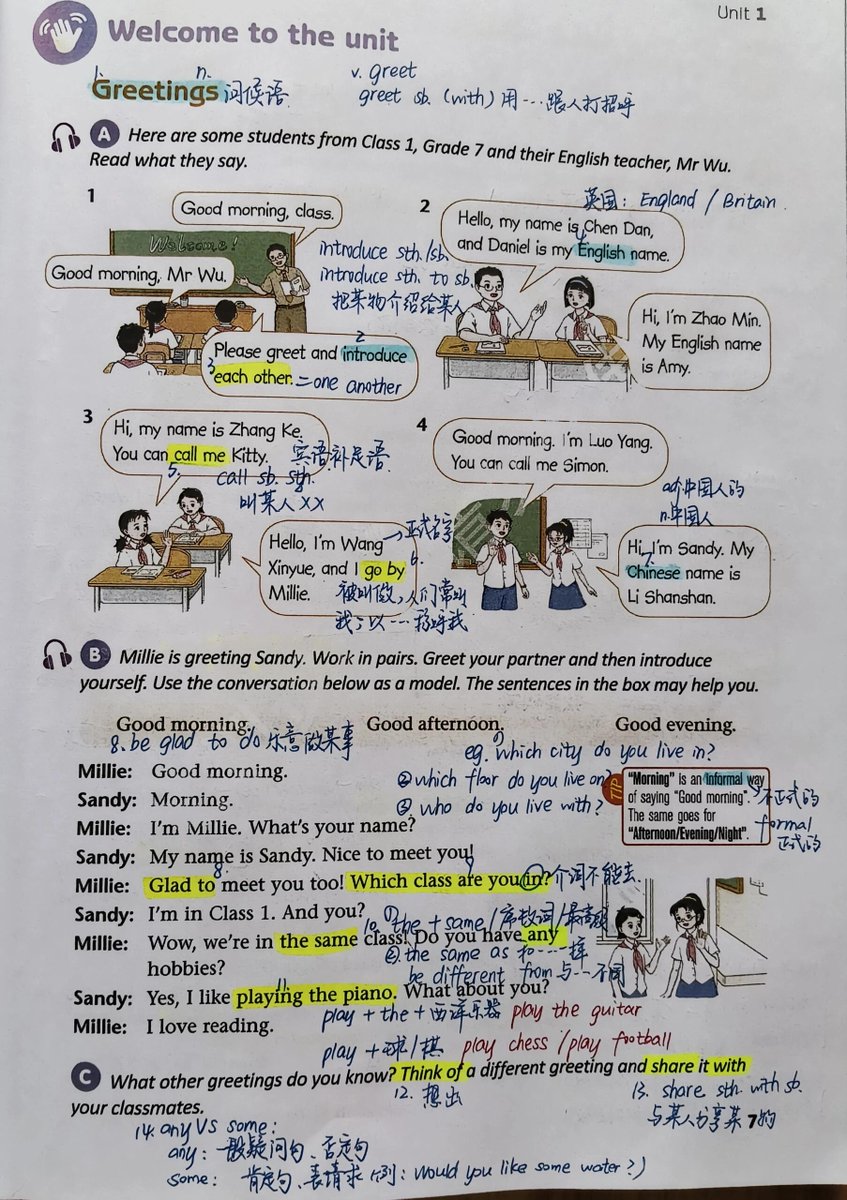 Unit 1
Welcome to the unit
1. n. v. greet
Greetings 问候语 greet sb. (with) 用…跟人打招呼
A Here are some students from Class 1, Grade 7 and their English teacher, Mr Wu.
Read what they say.
1
Good morning, class.
Welcome!
Good morning, Mr Wu.
introduce sth./sb.
introduce sth. to sb.
把某物介绍给某人
2
Please greet and introduce
3 each other. = one another
英国: England / Britain
2
Hello, my name is Chen Dan,
4
and Daniel is my English name.
Hi, I'm Zhao Min.
My English name
is Amy.
3
Hi, my name is Zhang Ke.
You can call me Kitty. 宾语补足语
5. call sb. sth.
叫某人XX
Hello, I'm Wang 正式名字
Xinyue, and I go by 6.
Millie. 被叫做,人们常叫
我;以…称呼我
4
Good morning. I'm Luo Yang.
You can call me Simon.
adj.中国人的
n.中国人
Hi, I'm Sandy. My
7.
Chinese name is
Li Shanshan.
B Millie is greeting Sandy. Work in pairs. Greet your partner and then introduce
yourself. Use the conversation below as a model. The sentences in the box may help you.
Good morning. Good afternoon. Good evening.
8. be glad to do 乐意做某事
eg. ① which city do you live in?
② which floor do you live on?
③ who do you live with?
TIP
"Morning" is an informal way
of saying "Good morning". 不正式的
The same goes for formal
"Afternoon/Evening/Night". 正式的
Millie: Good morning.
Sandy: Morning.
Millie: I'm Millie. What's your name?
Sandy: My name is Sandy. Nice to meet you!
8. 9
Millie: Glad to meet you too! Which class are you in? 介词不能去.
Sandy: I'm in Class 1. And you?
10. ① the + same / 序数词 / 最高级
Millie: Wow, we're in the same class! Do you have any
hobbies?
② the same as 和……一样
be different from 与…不同
11
Sandy: Yes, I like playing the piano. What about you?
play + the + 西洋乐器 play the guitar
Millie: I love reading.
play + 球/棋 play chess / play football
C What other greetings do you know? Think of a different greeting and share it with
your classmates.
12. 想出
13. share sth. with sb.
与某人分享某物
7
14. any VS some:
any: 一般疑问句、否定句
some: 肯定句、表请求(例: Would you like some water?)